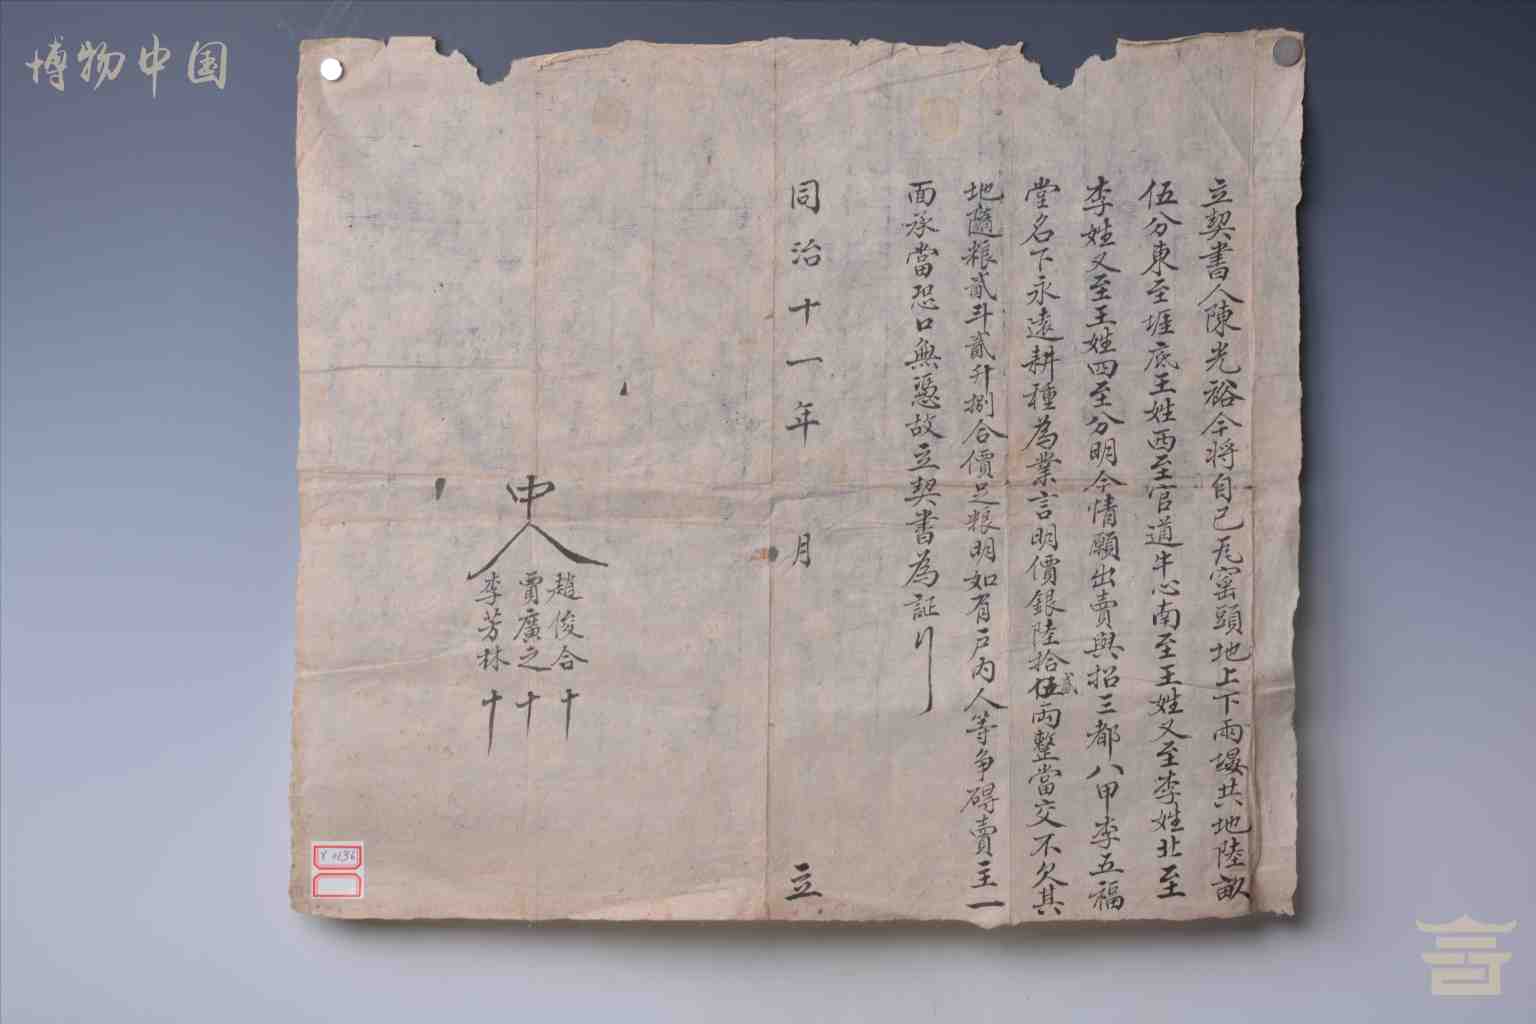 博物中国
立契書人陳光裕今將自己瓦窑頭地上下兩塅共地陸畝
伍分東至堐底王姓西至官道牛心南至王姓又至李姓北至
李姓又至王姓四至分明今情願出賣與招三都八甲李五福
堂名下永遠耕種為業言明價銀陸拾伍貳兩整當交不欠其
地隨粮貳斗貳升捌合價足粮明如有戸内人等争碍賣主一
面承當恐口無憑故立契書為証
同治十一年 月 立
中人
趙俊合 十
賈廣之 十
李芳林 十
Y 0136